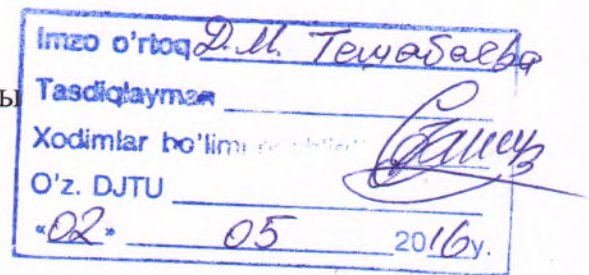 Imzo o'rtoq Д.М. Тешабаева
ы Tasdiqlayman
Xodimlar bo'limi
O'z. DJTU
«02» 05 2016y.